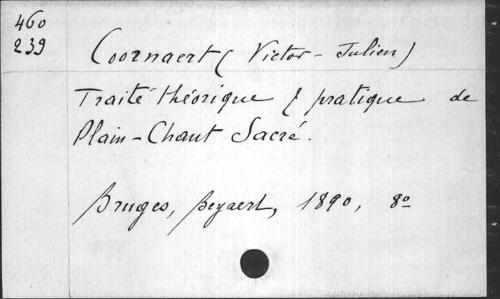 460
239
Coornaert (Victor-Julien)
Traité théorique & pratique de
Plain-Chant Sacré.
Bruges, Beyaert, 1890, 8º